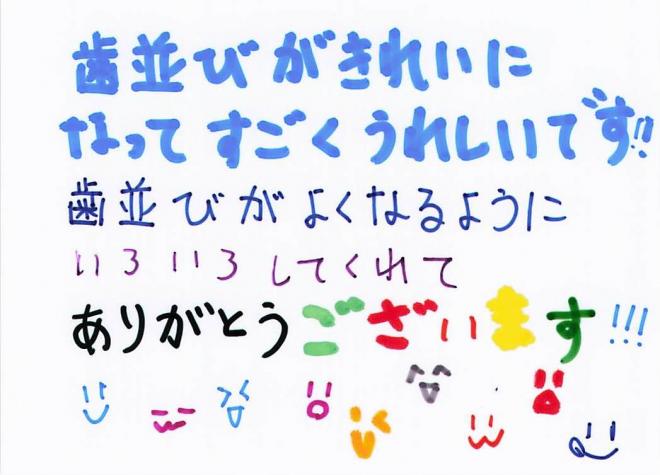 歯並びがきれいに
なってすごくうれしいです!!
歯並びがよくなるように
いろいろしてくれて
ありがとうございます!!!